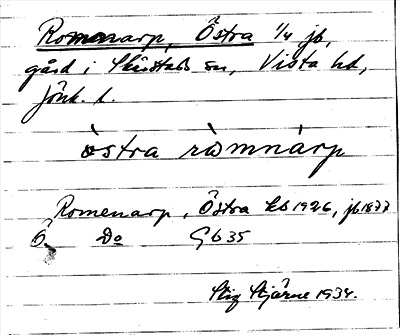 Romenarp, Östra 1/4 jb,
gård i Skärstads sn, Vista hd,
Jönk. l.
östra ròmnàrp
Romenarp, Östra kb 1926, jb 1877
Ö. Do Gb 35
Stig Stjärne 1934.